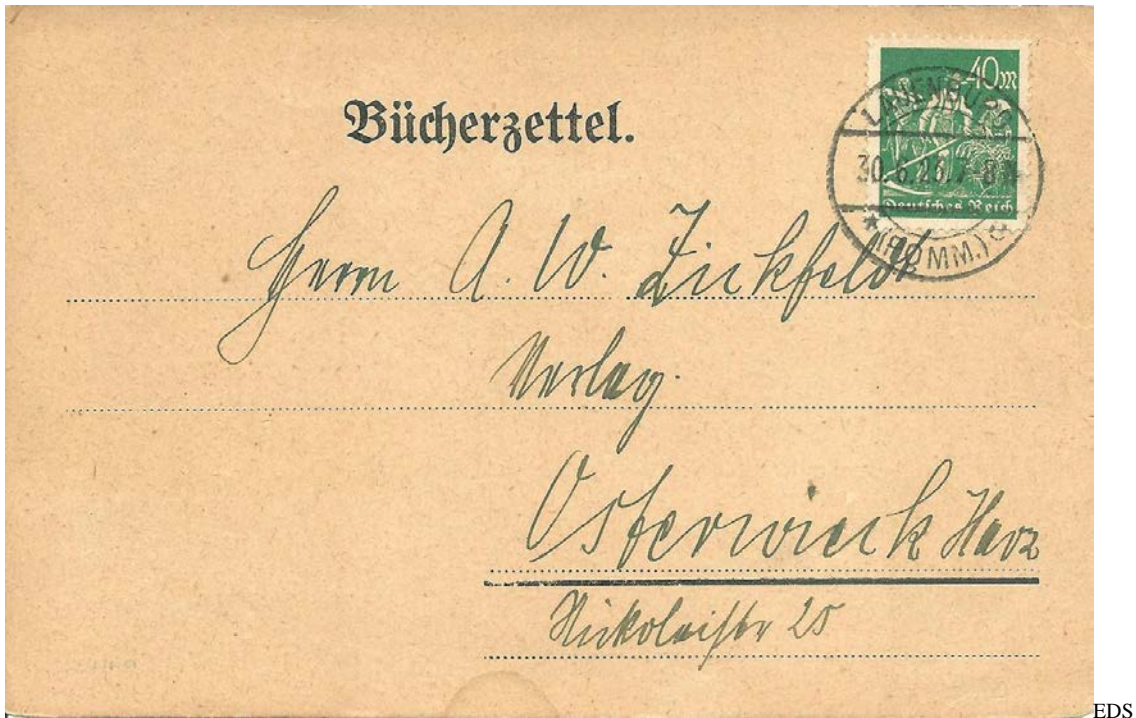 Bücherzettel.
40M
LAUENBURG
30.6.23.7-8N
*(POMM.)
Deutsches Reich
Herrn A. W. Zickfeldt
Verlag.
Osterwieck Harz
Nikolaistr 25
EDS